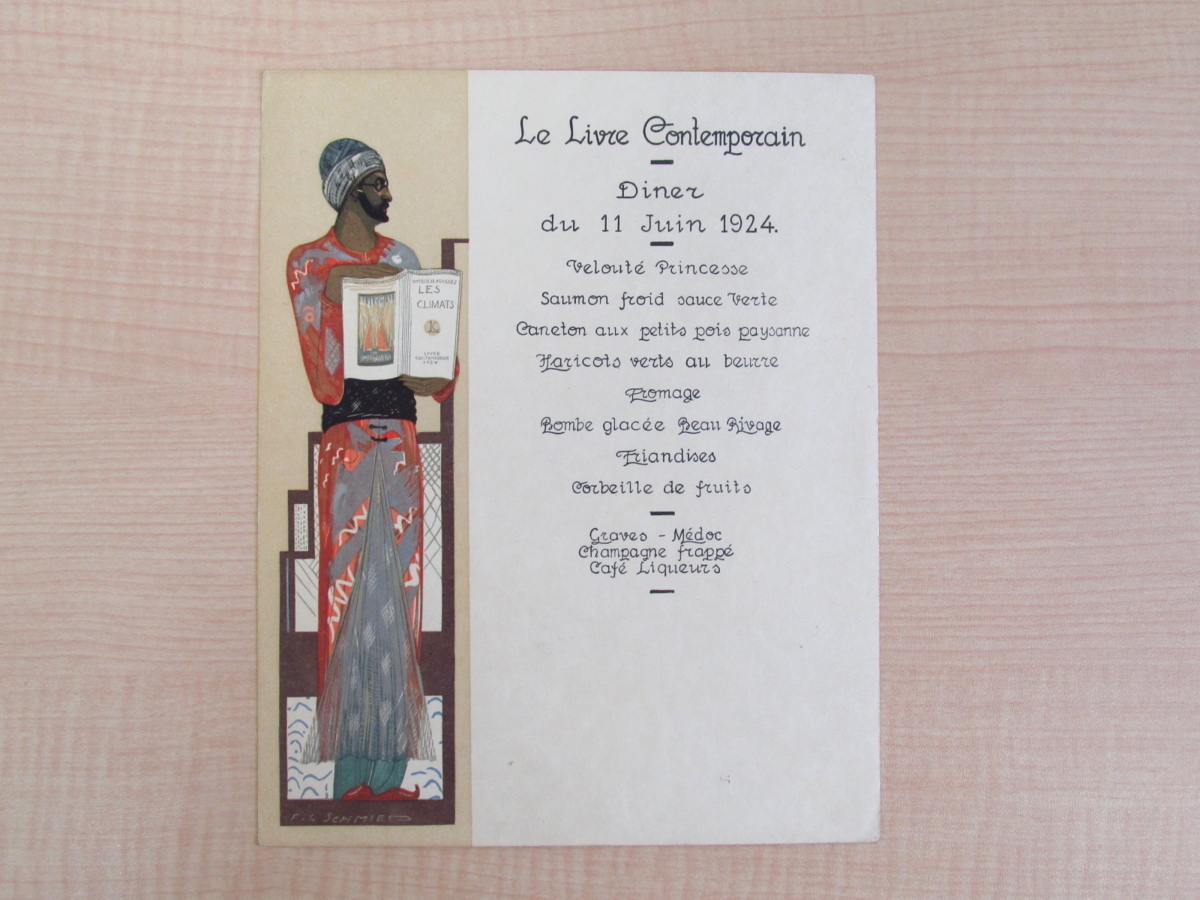 Le Livre Contemporain
Diner
du 11 Juin 1924.
Velouté Princesse
Saumon froid sauce Verte
Caneton aux petits pois paysanne
Haricots verts au beurre
Fromage
Bombe glacée Beau Rivage
Friandises
Corbeille de fruits
Graves - Médoc
Champagne frappé
Café Liqueurs
LES
CLIMATS
LIVRE
CONTEMPORAIN
1924
F. L. SCHMIED